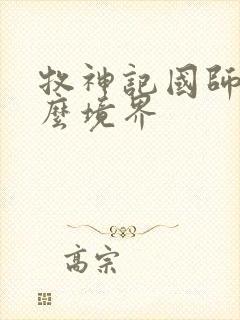 牧神記國師
麼境界
高宗